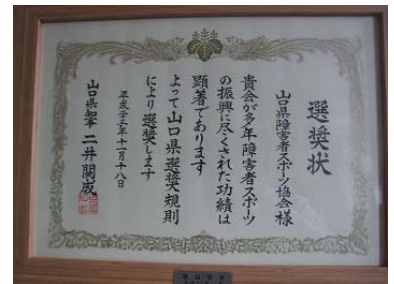 選奨状
山口県障害者スポーツ協会様
貴会が多年障害者スポーツ
の振興に尽くされた功績は
顕著であります
よって山口県選奨規則
により選奨します
平成二十二年十一月十八日
山口県知事 二井関成